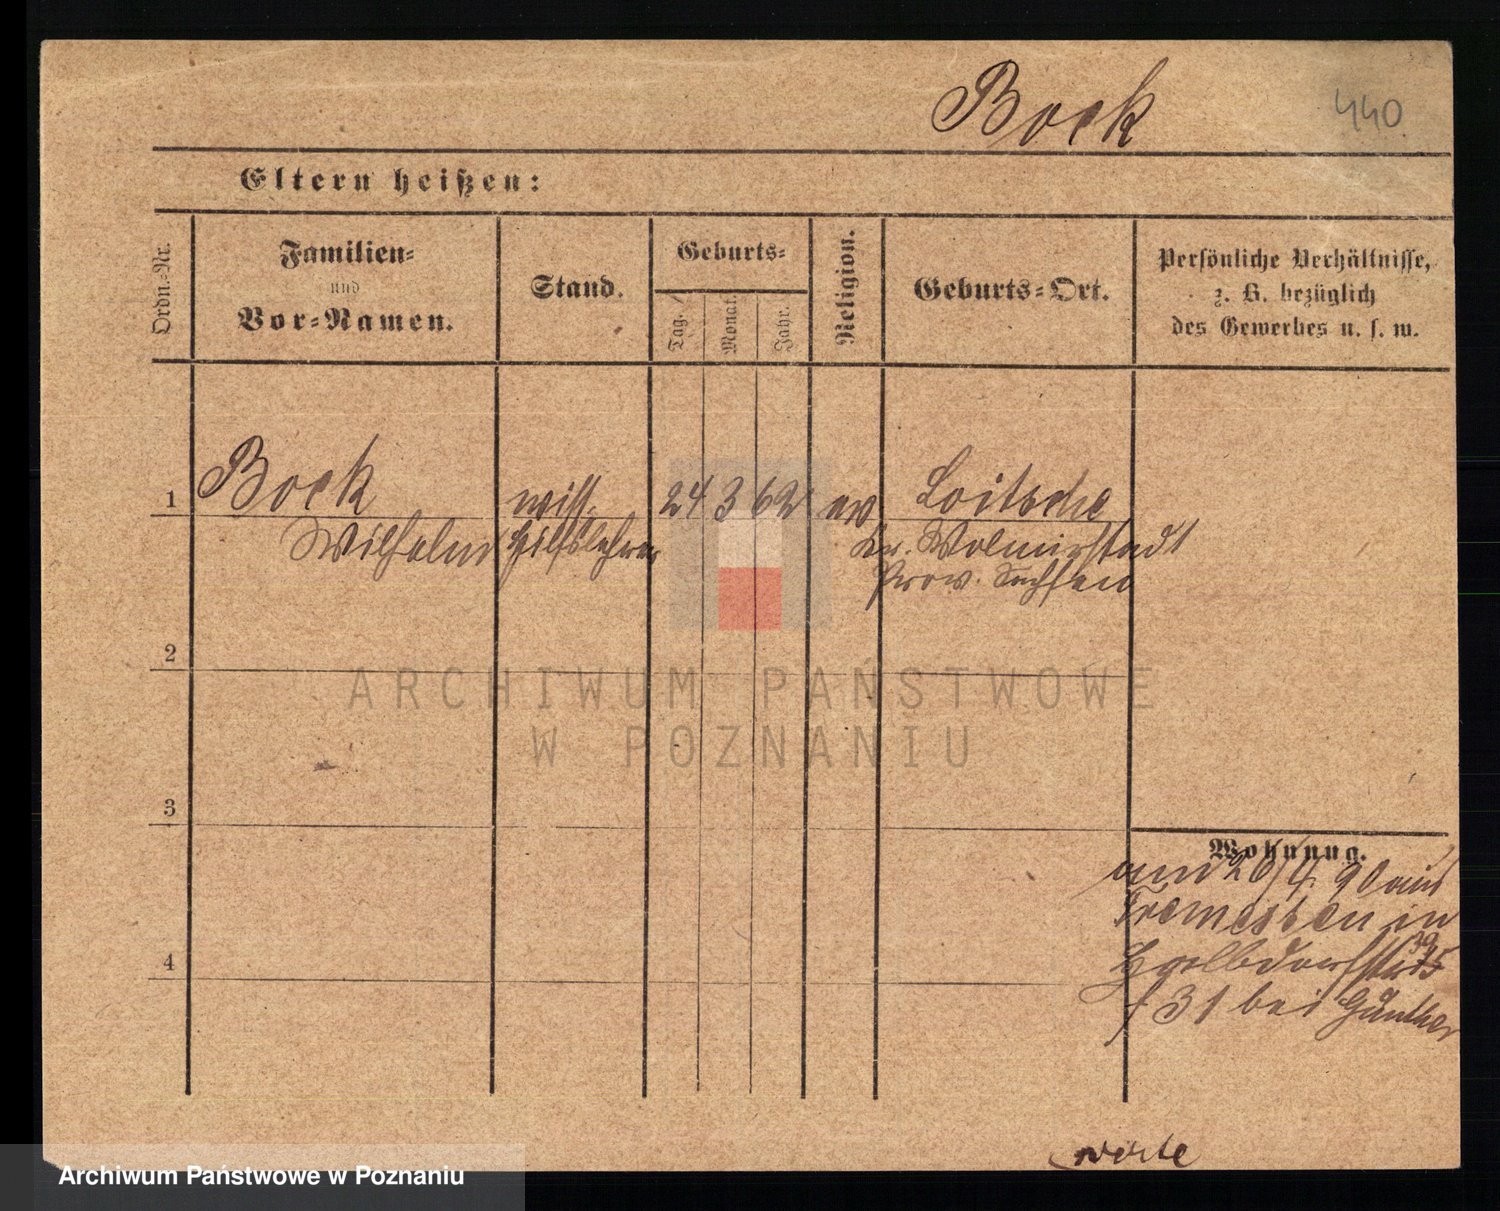 Bock
440
Eltern heißen:
Ordn.-Nr.
Familien-
und
Vor-Namen.
Stand.
Geburts-
Tag.
Monat.
Jahr.
Religion.
Geburts-Ort.
Persönliche Verhältnisse,
z. B. bezüglich
des Gewerbes u. s. w.
1
Bock
Wilhelm
wiss.
Hilfslehrer
24 3 62
ev
Loitsche
Kr. Wolmirstadt
Prov. Sachsen
2
3
4
Wohnung.
26/4. 90 aus
Tremessen in
31 bei Günther
ARCHIWUM PAŃSTWOWE
W POZNANIU
Archiwum Państwowe w Poznaniu